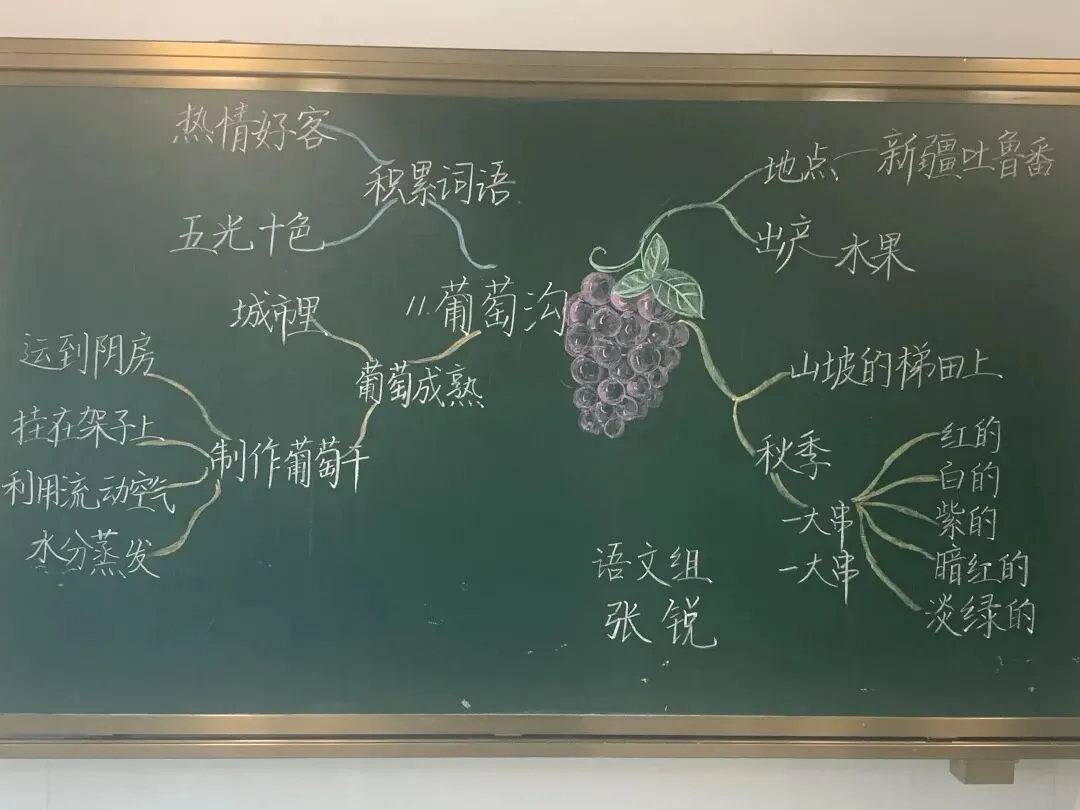 热情好客
积累词语
五光十色
11.葡萄沟
地点
新疆吐鲁番
出产
水果
城市里
葡萄成熟
运到阴房
挂在架子上
制作葡萄干
利用流动空气
水分蒸发
山坡的梯田上
秋季
一大串
一大串
红的
白的
紫的
暗红的
淡绿的
语文组
张锐